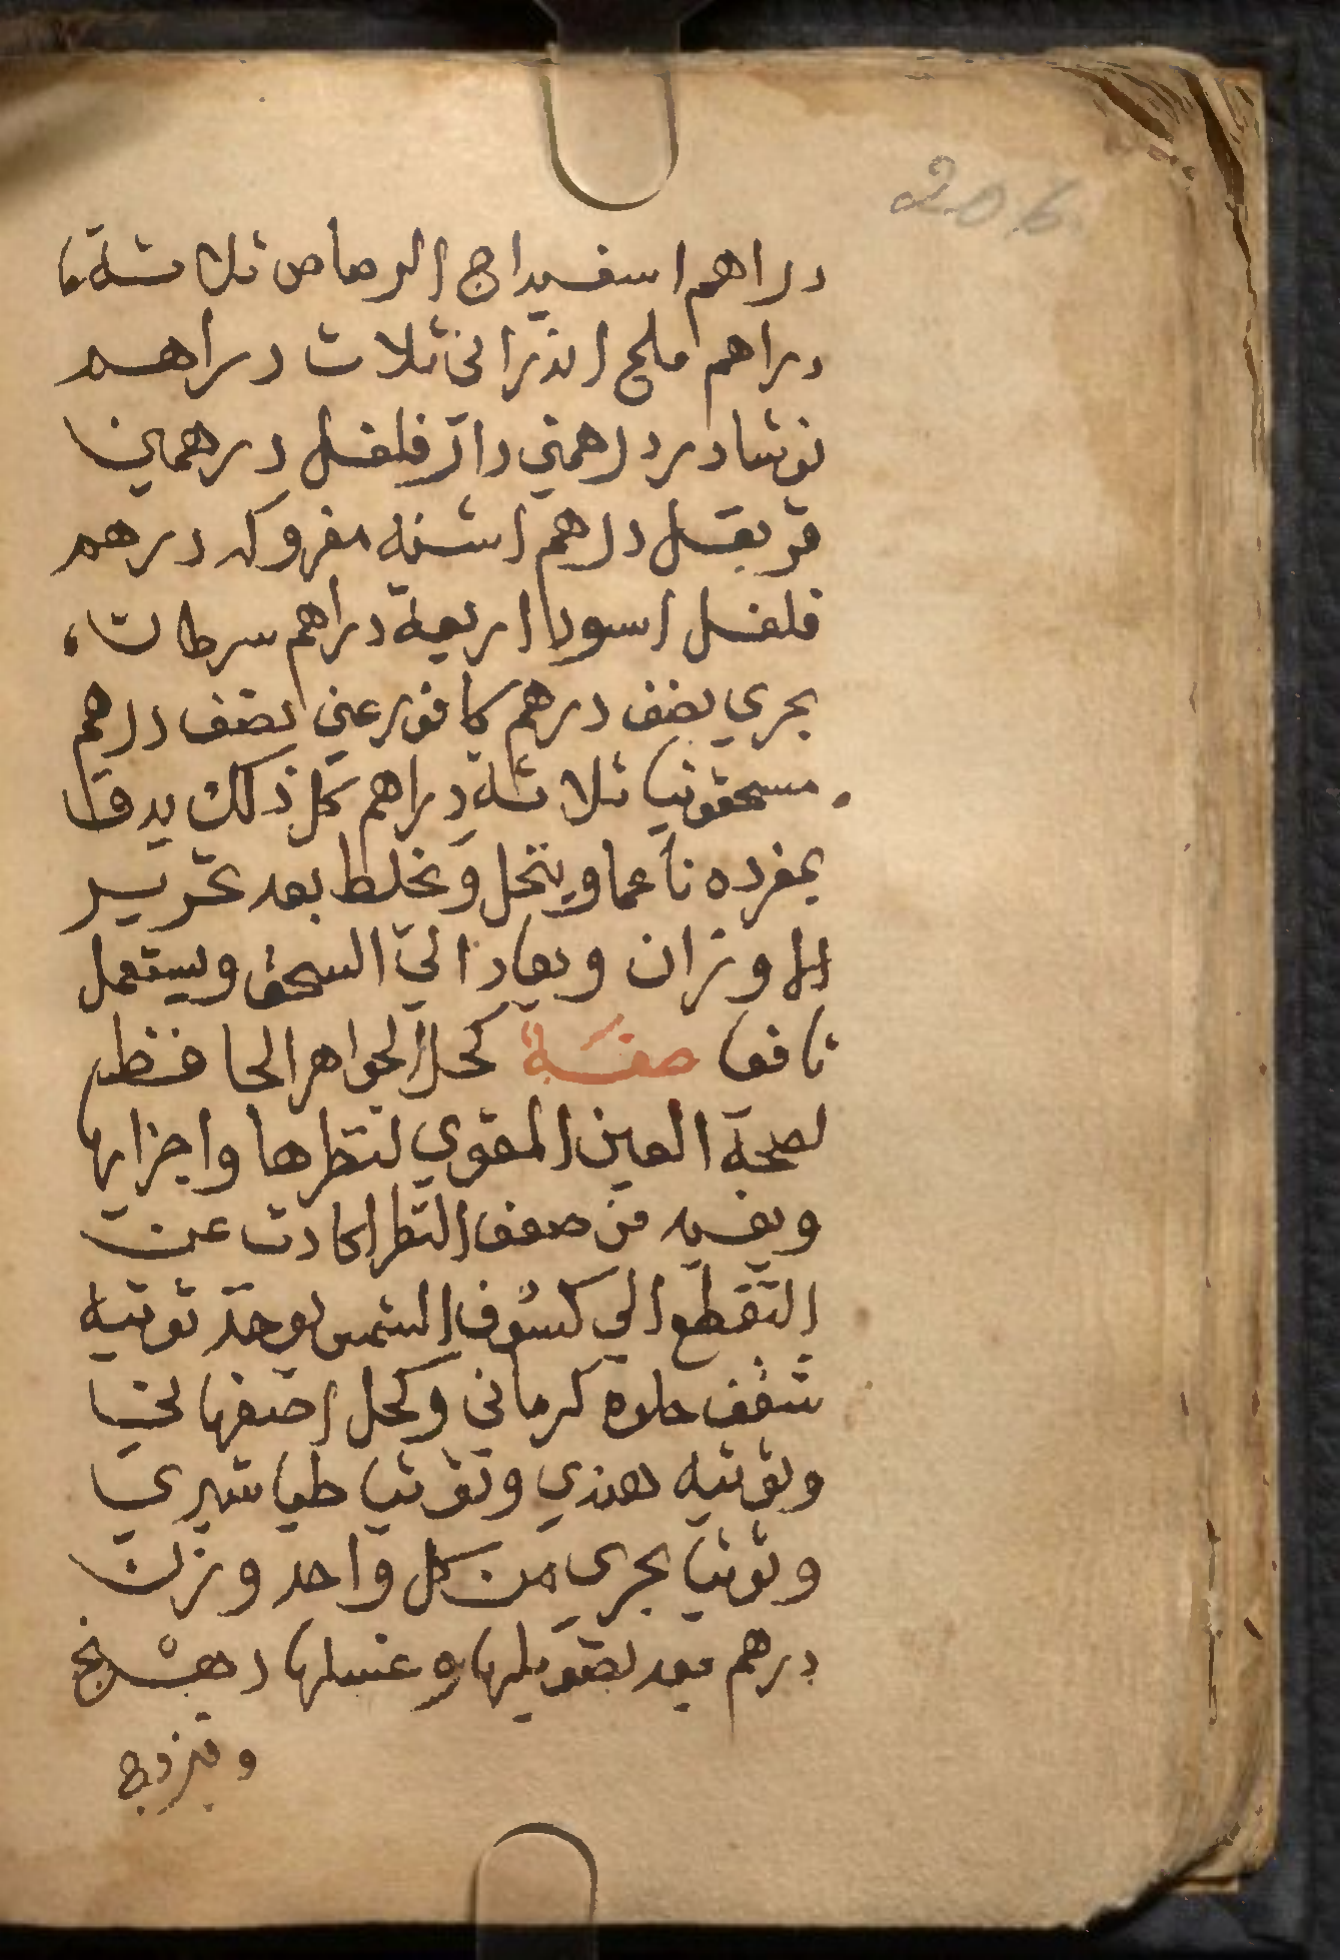 206
دراهم اسفيداج الرصاص ثلاثة
دراهم ملح اندراني ثلاث دراهم
نوشادر درهمين دار فلفل درهمين
قرنفل درهم اشنه مفروكه درهم
فلفل اسود اربعة دراهم سرطان
بحري نصف درهم كافور عني نصف درهم
مسحقونيا ثلاثة دراهم كل ذلك يدق
بمفرده ناعما وينخل وتخلط بعد تحرير
الاوزان ويعاد الي السحق ويستعمل
نافع صفة كحل الجواهر الحافظ
لصحة العين المقوي لنظرها واجزايها
ويفيد من ضعف النظر الحادث عن
التقطع الي كسوف الشمس يوخذ توتيه
شقف حلوه كرماني وكحل اصفهاني
وتوتيه هندي وتوتيا طباشيري
وتوتيا بحري من كل واحد وزن
درهم بعد تصويلها وغسلها دهنج